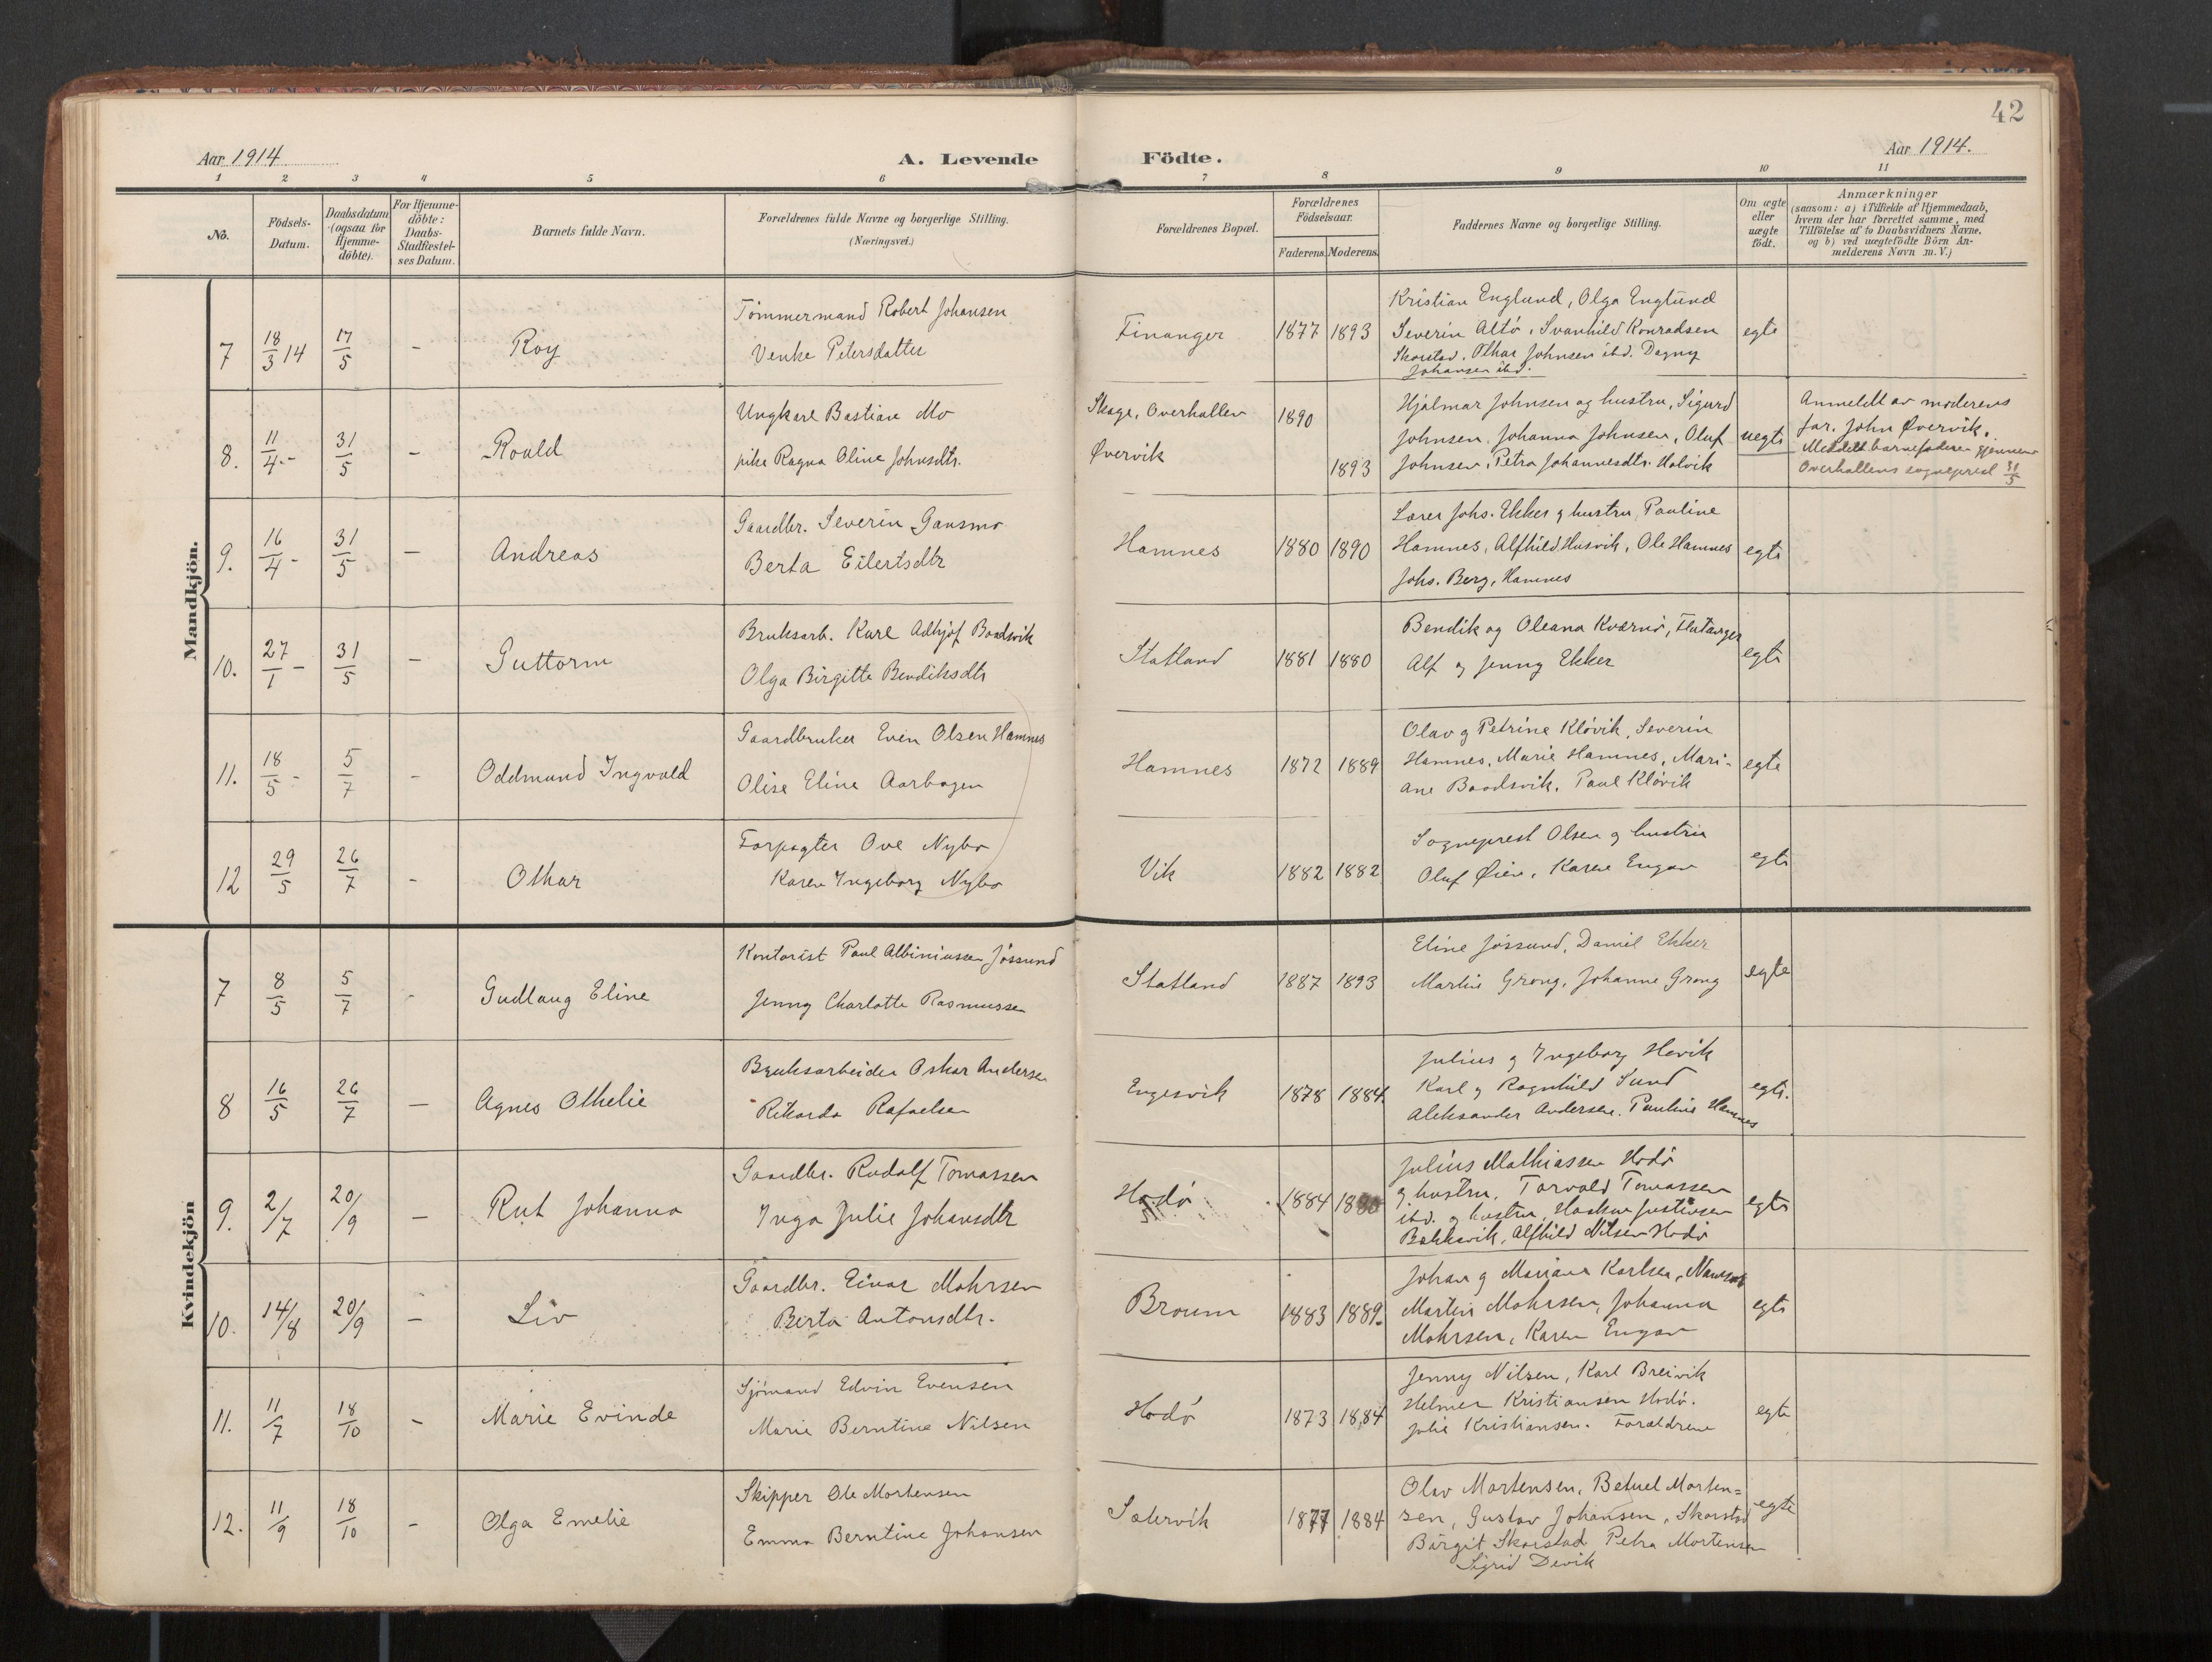 42
Aar 1914
A. Levende
Födte.
Aar 1914.
1 2 3 4 5 6 7 8 9 10 11
No.
Födsels-
Datum.
Daabsdatum
(ogsaa for
Hjemme-
döbte).
For Hjemme-
döbte:
Daabs-
Stadfæstel-
ses Datum.
Barnets fulde Navn.
Forældrenes fulde Navne og borgerlige Stilling.
(Næringsvei.)
Forældrenes Bopæl.
Forældrenes
Födselsaar.
Faderens. Moderens.
Faddernes Navne og borgerlige Stilling.
Om ægte
eller
uægte
födt.
Anmærkninger
(saasom: a) i Tilfælde af Hjemmedaab,
hvem der har forrettet samme, med
Tilföielse af to Daabsvidners Navne,
og b) ved uægtefödte Börn An-
melderens Navn m. V.)
Mandkjön.
7 18/3 14 17/5 - Roy
Tömmermand Robert Johansen
Venke Petersdatter
Finanger 1877 1893
Kristian Englund, Olga Englund
Severin Altö, Svanhild Konradsen
Skorstad, Othar Johnsen ibd. Dagny
Johansen ibd.
egte
8. 11/4 - 31/5 - Roald
Ungkarl Bastian Mo
pike Ragna Oline Johnsdtr.
Skage, Overhallen 1890
Øvervik 1893
Hjalmar Johnsen og hustru, Sigurd
Johnsen, Johanna Johnsen, Oluf
Johnsen, Petra Johannesdtr. Holvik
uegte
Anmeldt av moderens
far. John Øvervik.
Meddelt barnefaderen gjennem
Overhallens sogneprest 31/5
9. 16/4 - 31/5 - Andreas
Gaardbr. Severin Gansmo
Berta Eilertsdtr
Hamnes 1880 1890
Lærer Johs. Ekker og hustru, Pauline
Hamnes, Alfhild Husvik, Ole Hamnes
Johs. Berg, Hamnes
egte
10. 27/1 - 31/5 - Guttorm
Bruksarb. Karl Adhjof Baadsvik
Olga Birgitte Bendiksdtr
Statland 1881 1880
Bendik og Oleana Kværnö, Flatanger
Alf og Jenny Ekker
egte
11. 18/5 - 5/7 - Oddmund Ingvald
Gaardbruker Even Olsen Hamnes
Olise Eline Aarbogen
Hamnes 1872 1889
Olav og Petrine Klövik, Severin
Hamnes, Marie Hamnes, Mari-
ane Baadsvik, Paul Klövik
egte
12 29/5 26/7 - Othar
Forpagter Ove Nybo
Karen Ingeborg Nybo
Vik 1882 1882
Sogneprest Olsen og hustru
Oluf Øien, Karen Engan
egte
Kvindekjön
7 8/5 5/7 - Gudlaug Eline
Kontorist Paul Albiniussen Jössund
Jenny Charlotte Rasmussen
Statland 1887 1893
Eline Jössund, Daniel Ekker
Martin Grong, Johanne Grong
egte
8 16/5 26/7 - Agnes Othelie
Bruksarbeider Oskar Andersen
Rikarda Rafaelsen
Engesvik 1878 1884.
Julius og Ingeborg Hovik
Karl og Ragnhild Sund
Aleksander Andersen. Pauline Hamnes
egte.
9. 2/7 20/9 - Rut Johanna
Gaardbr. Rudolf Tomassen
Inga Julie Johansdtr
Hodö 1884
Julius Mathiassen Hodö
og hustru, Torvald Tomassen
ibd. og hustru, Haakon Justinsen
Bakkevik, Alfhild Nilsen Hodö
egte
10. 14/8 20/9 - Liv
Gaardbr. Einar Mohrsen
Berta Antonsdtr.
Braum 1883 1889.
Johan og Mariane Karlsen, Namsos
Martin Mohrsen, Johanna
Mohrsen, Karen Engan
egte
11. 11/7 18/10 - Marie Evinde
Sjömand Edvin Evensen
Marie Berntine Nilsen
Hodö 1873 1884
Jenny Nilsen, Karl Breivik
Helmer Kristiansen Hodö.
Julie Kristiansen. Forældrene
egte
12. 11/9 18/10 - Olga Emelie
Skipper Ole Mortensen
Emma Berntine Johansen
Sætervik 1877 1884
Olav Mortensen, Betuel Morten=
sen, Gustav Johansen, Skorstad
Börgit Skorstad Petra Mortensen
Sigrid Devik
egte